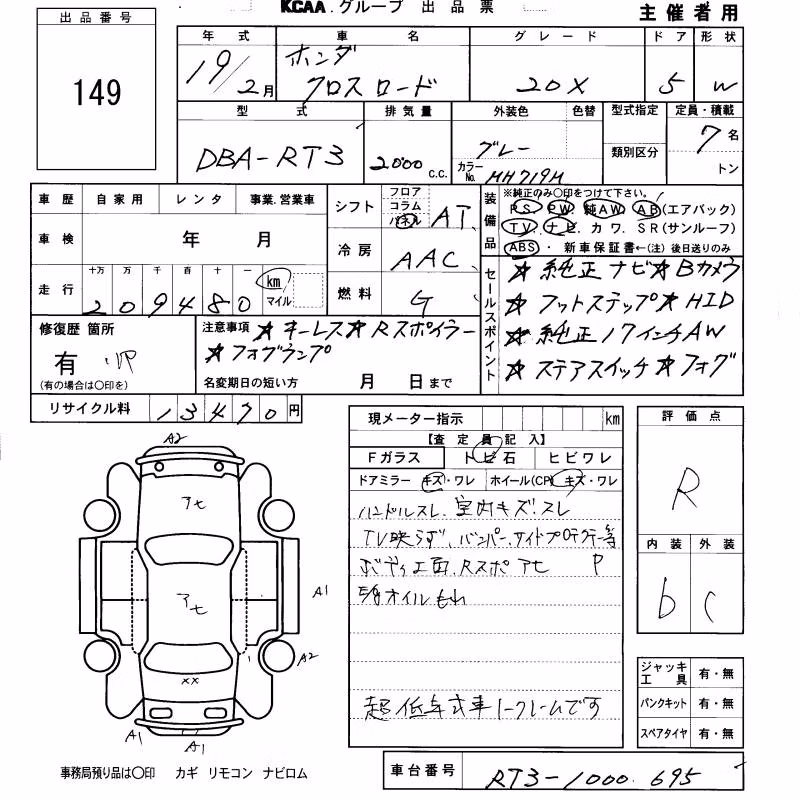 出品番号
149
KCAA.グループ 出品票
主催者用
年式 車名 グレード ドア 形状
19/2月 ホンダ クロスロード 20X 5 W
型式 排気量 外装色 色替 型式指定 定員・積載
DBA-RT3 2000 c.c. グレー カラーNo. MH719M 類別区分 7名 トン
車歴 自家用 レンタ 事業.営業車
車検 年 月
走行 十万 万 千 百 十 一
209480 km マイル
シフト フロア コラム パネル AT
冷房 AAC
燃料 G
装備品 ※純正のみ○印をつけて下さい。
PS. PW. 純AW. AB(エアバック)
TV. ナビ. カワ. SR(サンルーフ)
ABS・ 新車保証書←(注)後日送りのみ
セールスポイント
★純正ナビ★Bカメラ
★フットステップ★HID
★純正17インチAW
★ステアスイッチ★フォグ
修復歴 箇所
有
(有の場合は○印を)
注意事項 ★キーレス★Rスポイラー
★フォグランプ
名変期日の短い方 月 日まで
リサイクル料 13470円
現メーター指示 km
【査定員記入】
Fガラス トビ石 ヒビワレ
ドアミラー キズ・ワレ ホイール(CP) キズ・ワレ
ハンドルスレ. 室内キズ.スレ
TV映らず. バンパー.サイドプロテクター等
ボディ工面.Rスポ アセ P
E/gオイルもれ
超低年式車ノークレームです
評価点
R
内装 外装
b C
ジャッキ工具 有・無
パンクキット 有・無
スペアタイヤ 有・無
A2
アセ
アセ
A1
A2
XX
A1
A1
事務局預り品は○印 カギ リモコン ナビロム
車台番号 RT3-1000695